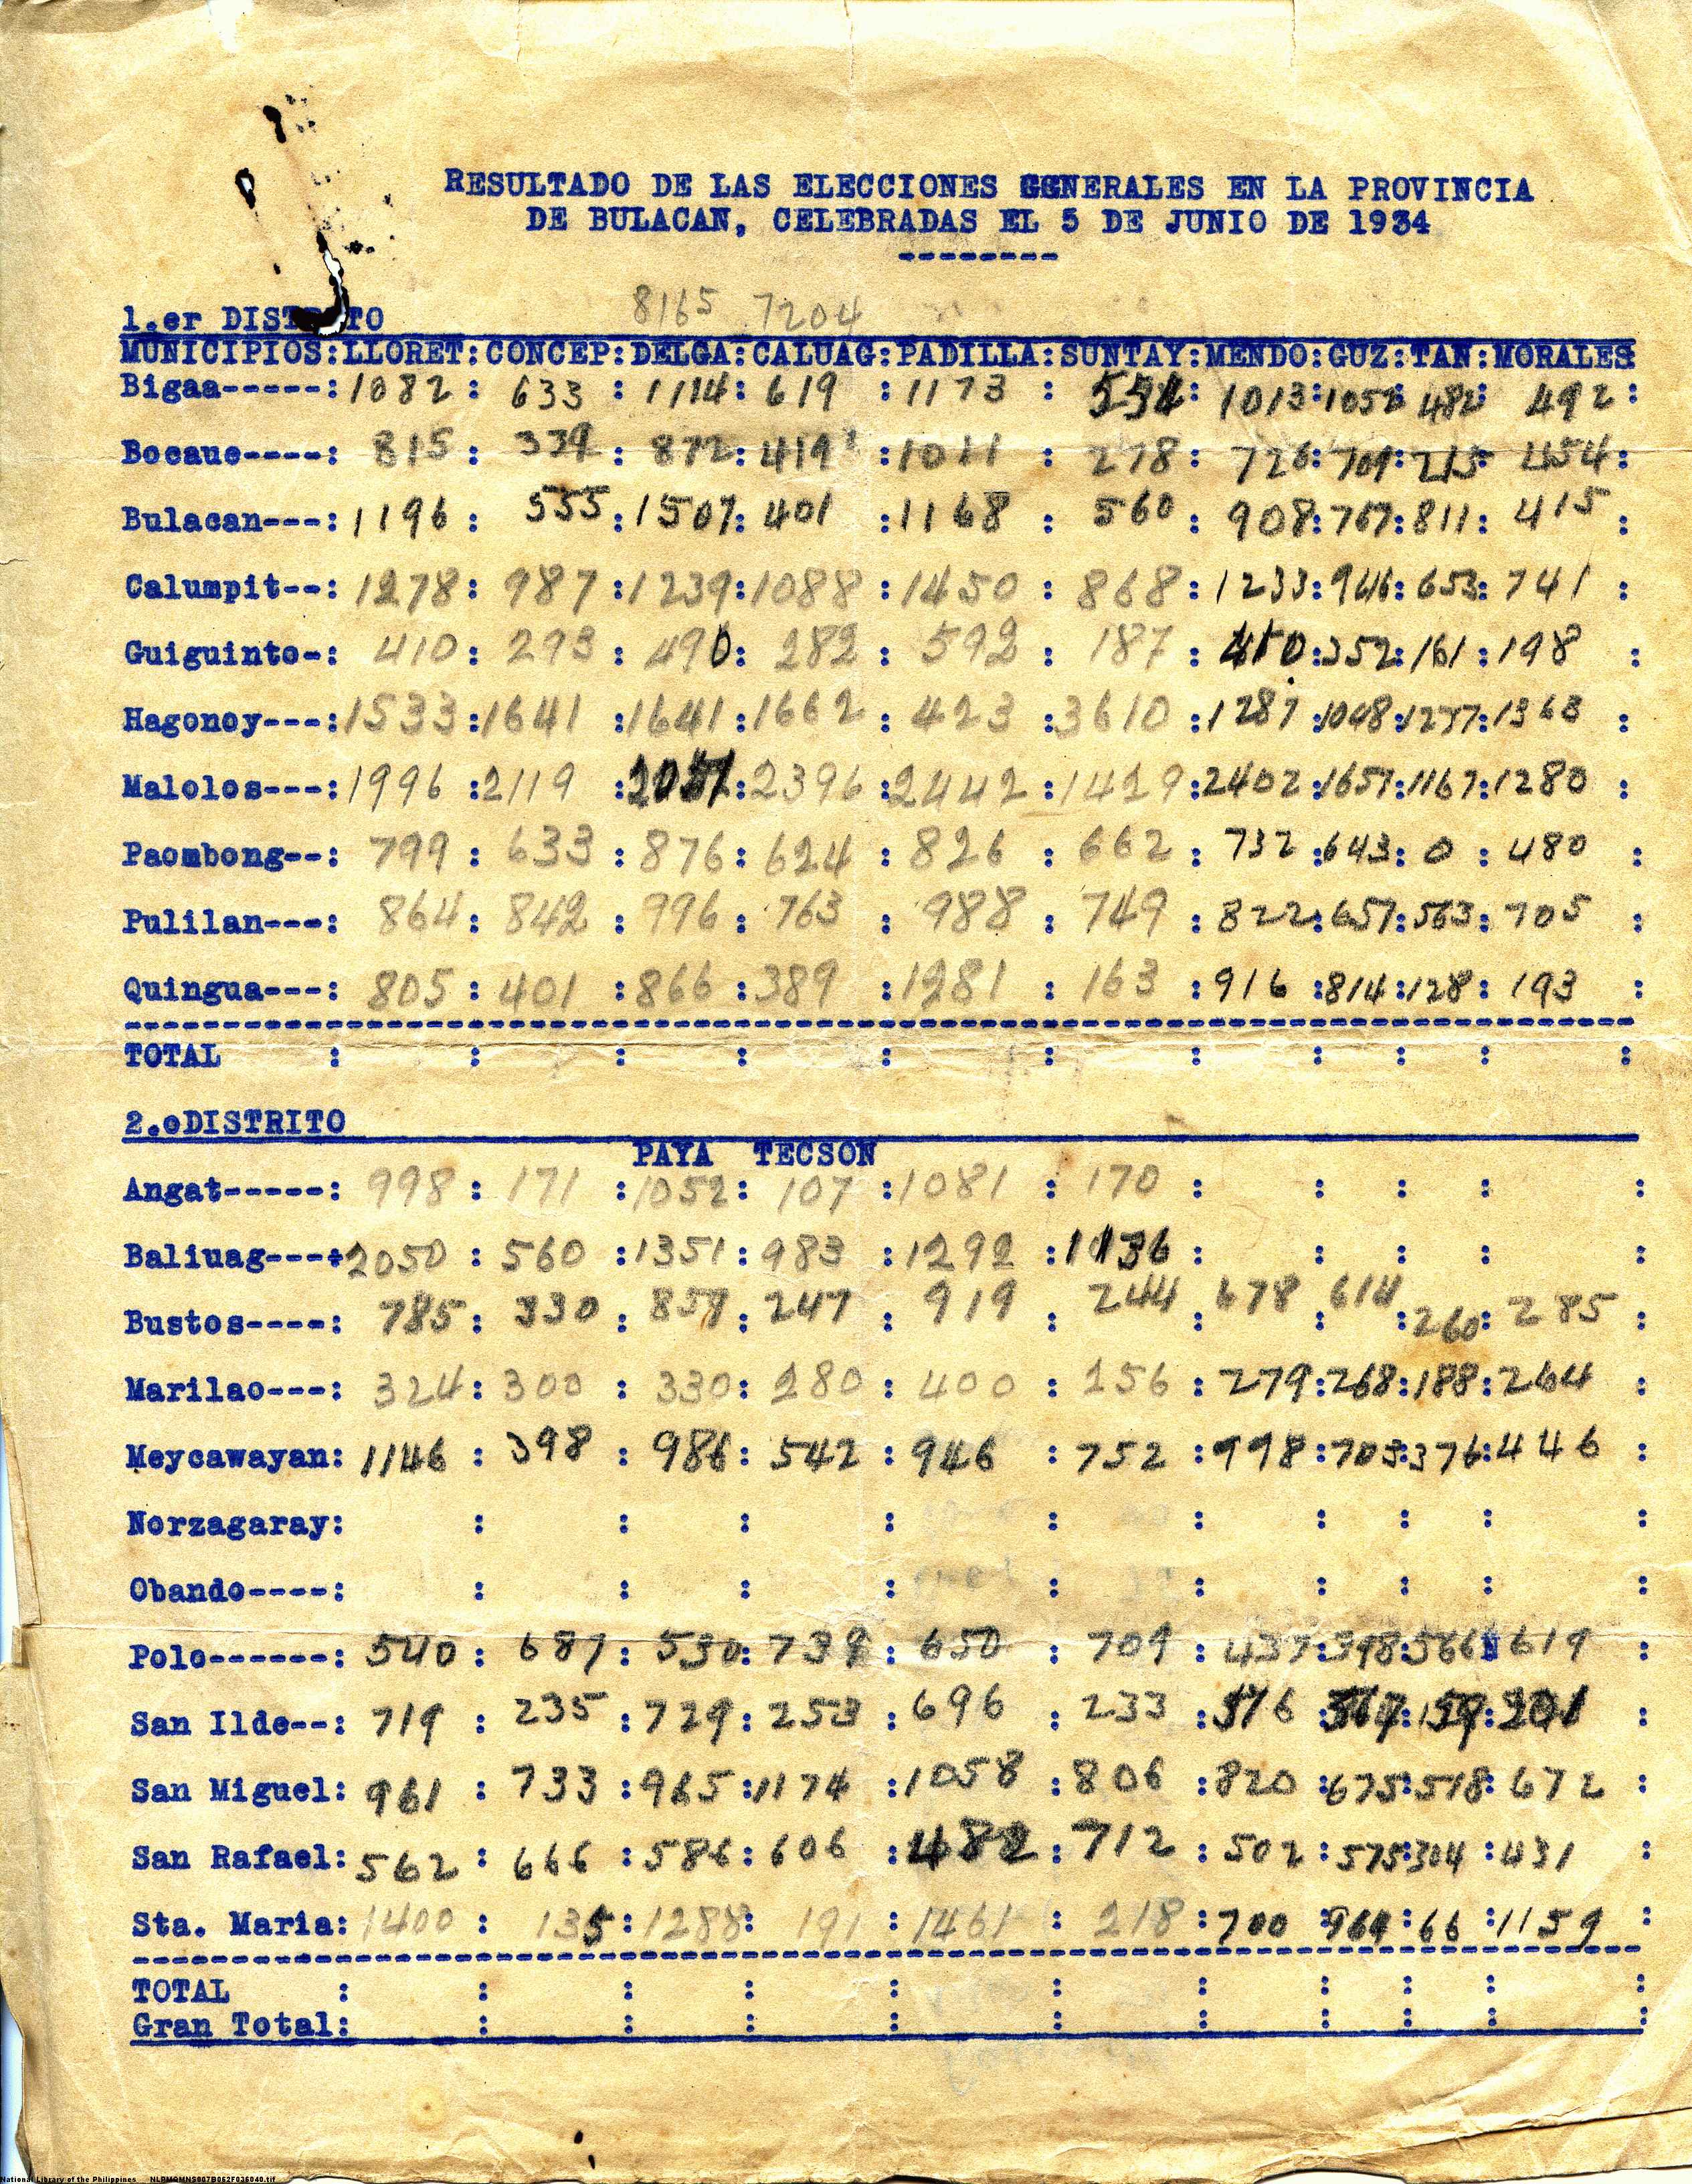 RESULTADO DE LAS ELECCIONES GENERALES EN LA PROVINCIA
DE BULACAN, CELEBRADAS EL 5 DE JUNIO DE 1934
--------
8165 7204
1.er DISTRITO
MUNICIPIOS:LLORET:CONCEP:DELGA:CALUAG:PADILLA:SUNTAY:MENDO:GUZ:TAN:MORALES
Bigaa-----: 1082 : 633 : 1114: 619 : 1173 : : 1013:1052: 482: 492 :
Bocaue----: 815 : 339 : 872: 419 : 1011 : 278 : 726: 709: 215: 454 :
Bulacan---: 1196 : 555 : 1507: 401 : 1168 : 560 : 908: 767: 811: 415 :
Calumpit--: 1278 : 987 : 1239: 1088 : 1450 : 868 : 1233: 946: 653: 741 :
Guiguinto-: 410 : 293 : 490: 282 : 592 : 187 : 410: 352: 161: 198 :
Hagonoy---: 1533 : 1641 : 1641: 1662 : 423 : 3610 : 1287: 1008: 1277: 1363 :
Malolos---: 1996 : 2119 : : 2396 : 2442 : 1429 : 2402: 1657: 1167: 1280 :
Paombong--: 799 : 633 : 876: 624 : 826 : 662 : 732: 643: 0 : 480 :
Pulilan---: 864 : 842 : 996: 763 : 988 : 749 : 822: 657: 563: 705 :
Quingua---: 805 : 401 : 866: 389 : 1281 : 163 : 916: 814: 128: 193 :
TOTAL : : : : : : : : : : :
2.oDISTRITO
PAYA TECSON
Angat-----: 998 : 171 : 1052: 107 : 1081 : 170 : : : : :
Baliuag---+2050 : 560 : 1351: 983 : 1292 : 1136 : : : : :
Bustos----: 785 : 330 : 857: 247 : 919 : 244 : 678 : 614 : 260: 285 :
Marilao---: 324 : 300 : 330: 280 : 400 : 256 : 279: 268: 188: 264 :
Meycawayan: 1146 : 398 : 986: 542 : 946 : 752 : 998: 703: 376: 446 :
Norzagaray: : : : : : : : : : :
Obando----: : : : : : : : : : :
Polo------: 540 : 687 : 530: 739 : 650 : 709 : 437: 398: 566: 619 :
San Ilde--: 719 : 235 : 729: 253 : 696 : 233 : 376 : : : 201 :
San Miguel: 961 : 733 : 965: 1174 : 1058 : 806 : 820 : 675: 518: 672 :
San Rafael: 562 : 666 : 586: 606 : 482 : 712 : 502 : 575: 304 : 431 :
Sta. Maria: 1400 : 135 : 1288: 191 : 1461 : 218 : 700 : 969 : 66 : 1159 :
TOTAL : : : : : : : : : : :
Gran Total: : : : : : : : : : :
National Library of the Philippines NLPMQMNS007B062F036040.tif